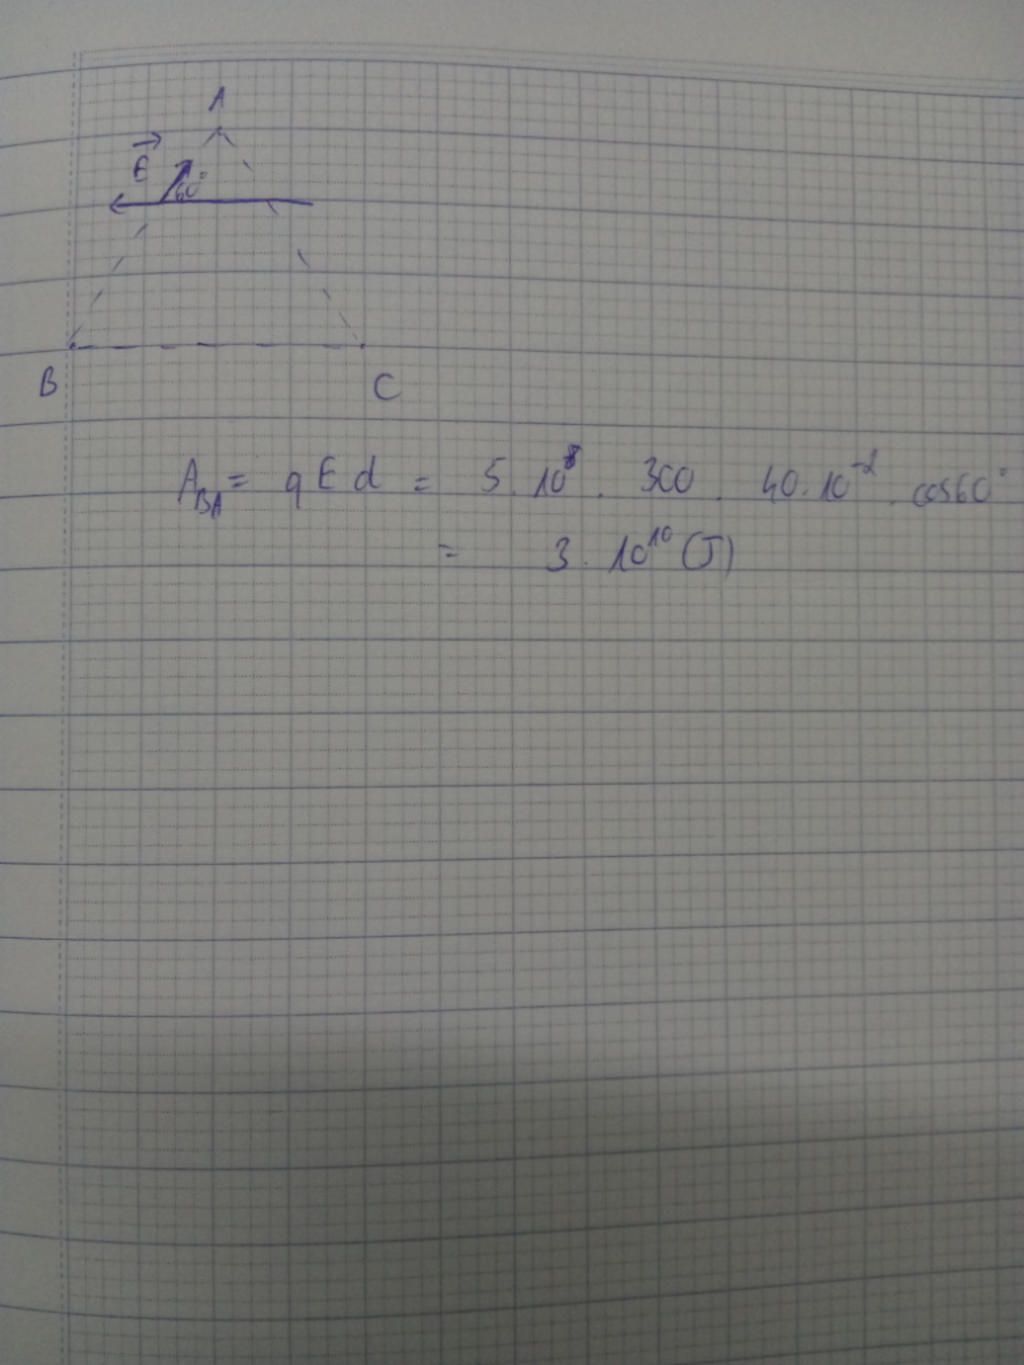 A
E
60°
B
C
A_BA = q E d = 5 . 10^8 . 300 . 40 . 10^-2 . cos60°
= 3 . 10^10 (J)